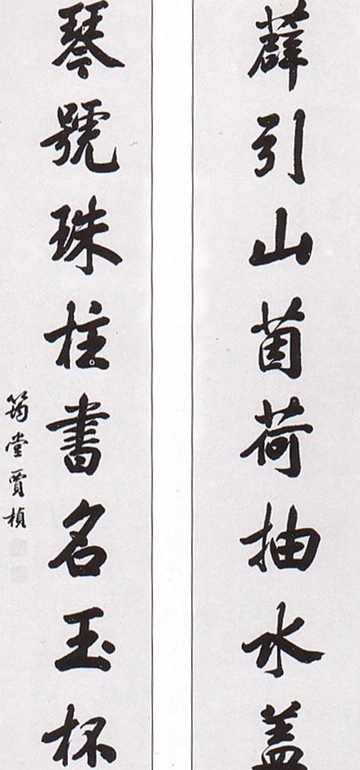 薜引山茵荷抽水蓋
琴號珠柱書名玉杯
筠堂賈楨